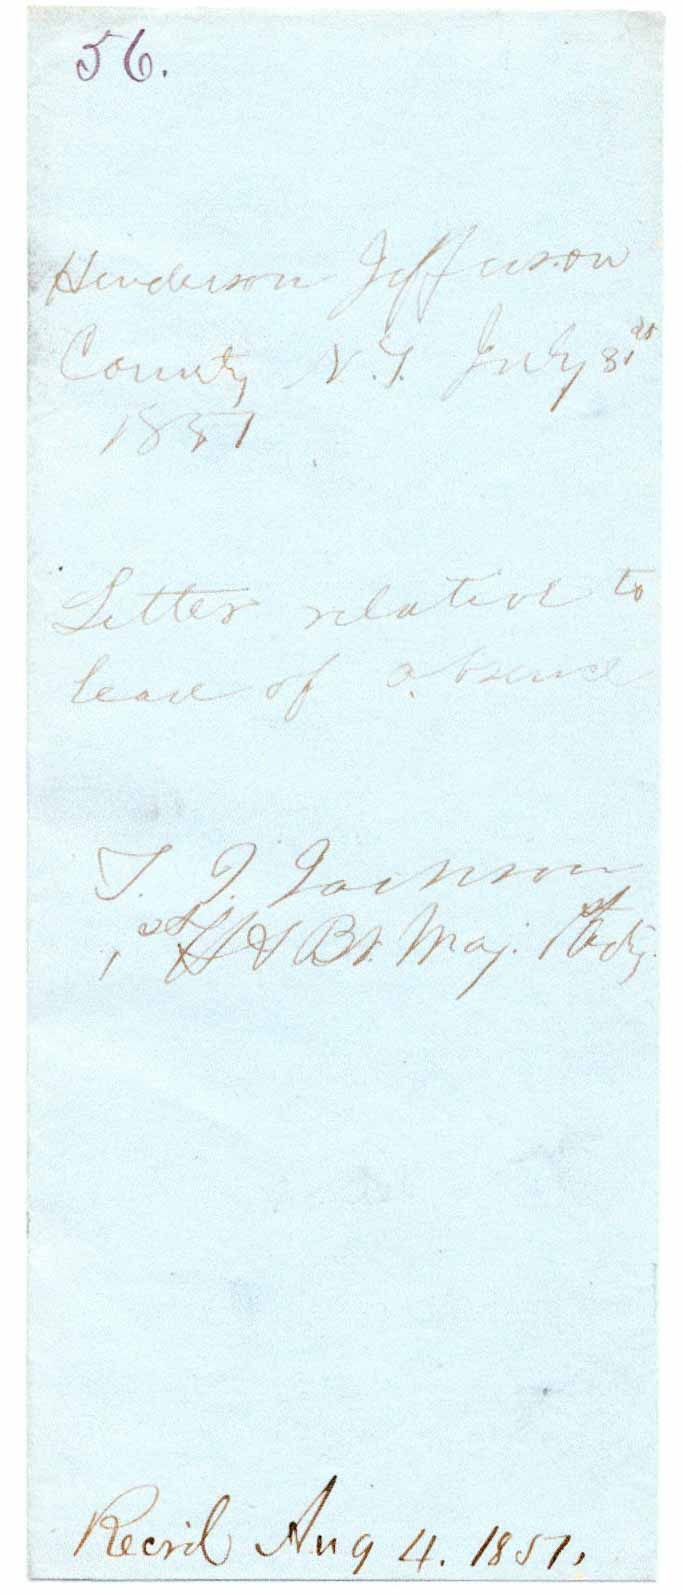 56.
Henderson Jefferson
County N.Y. July 31st
1851
Letter relative to
leave of absence
T. J. Jackson
1st Lt & Bt. Maj. 1st Arty.
Recvd Aug 4. 1851.